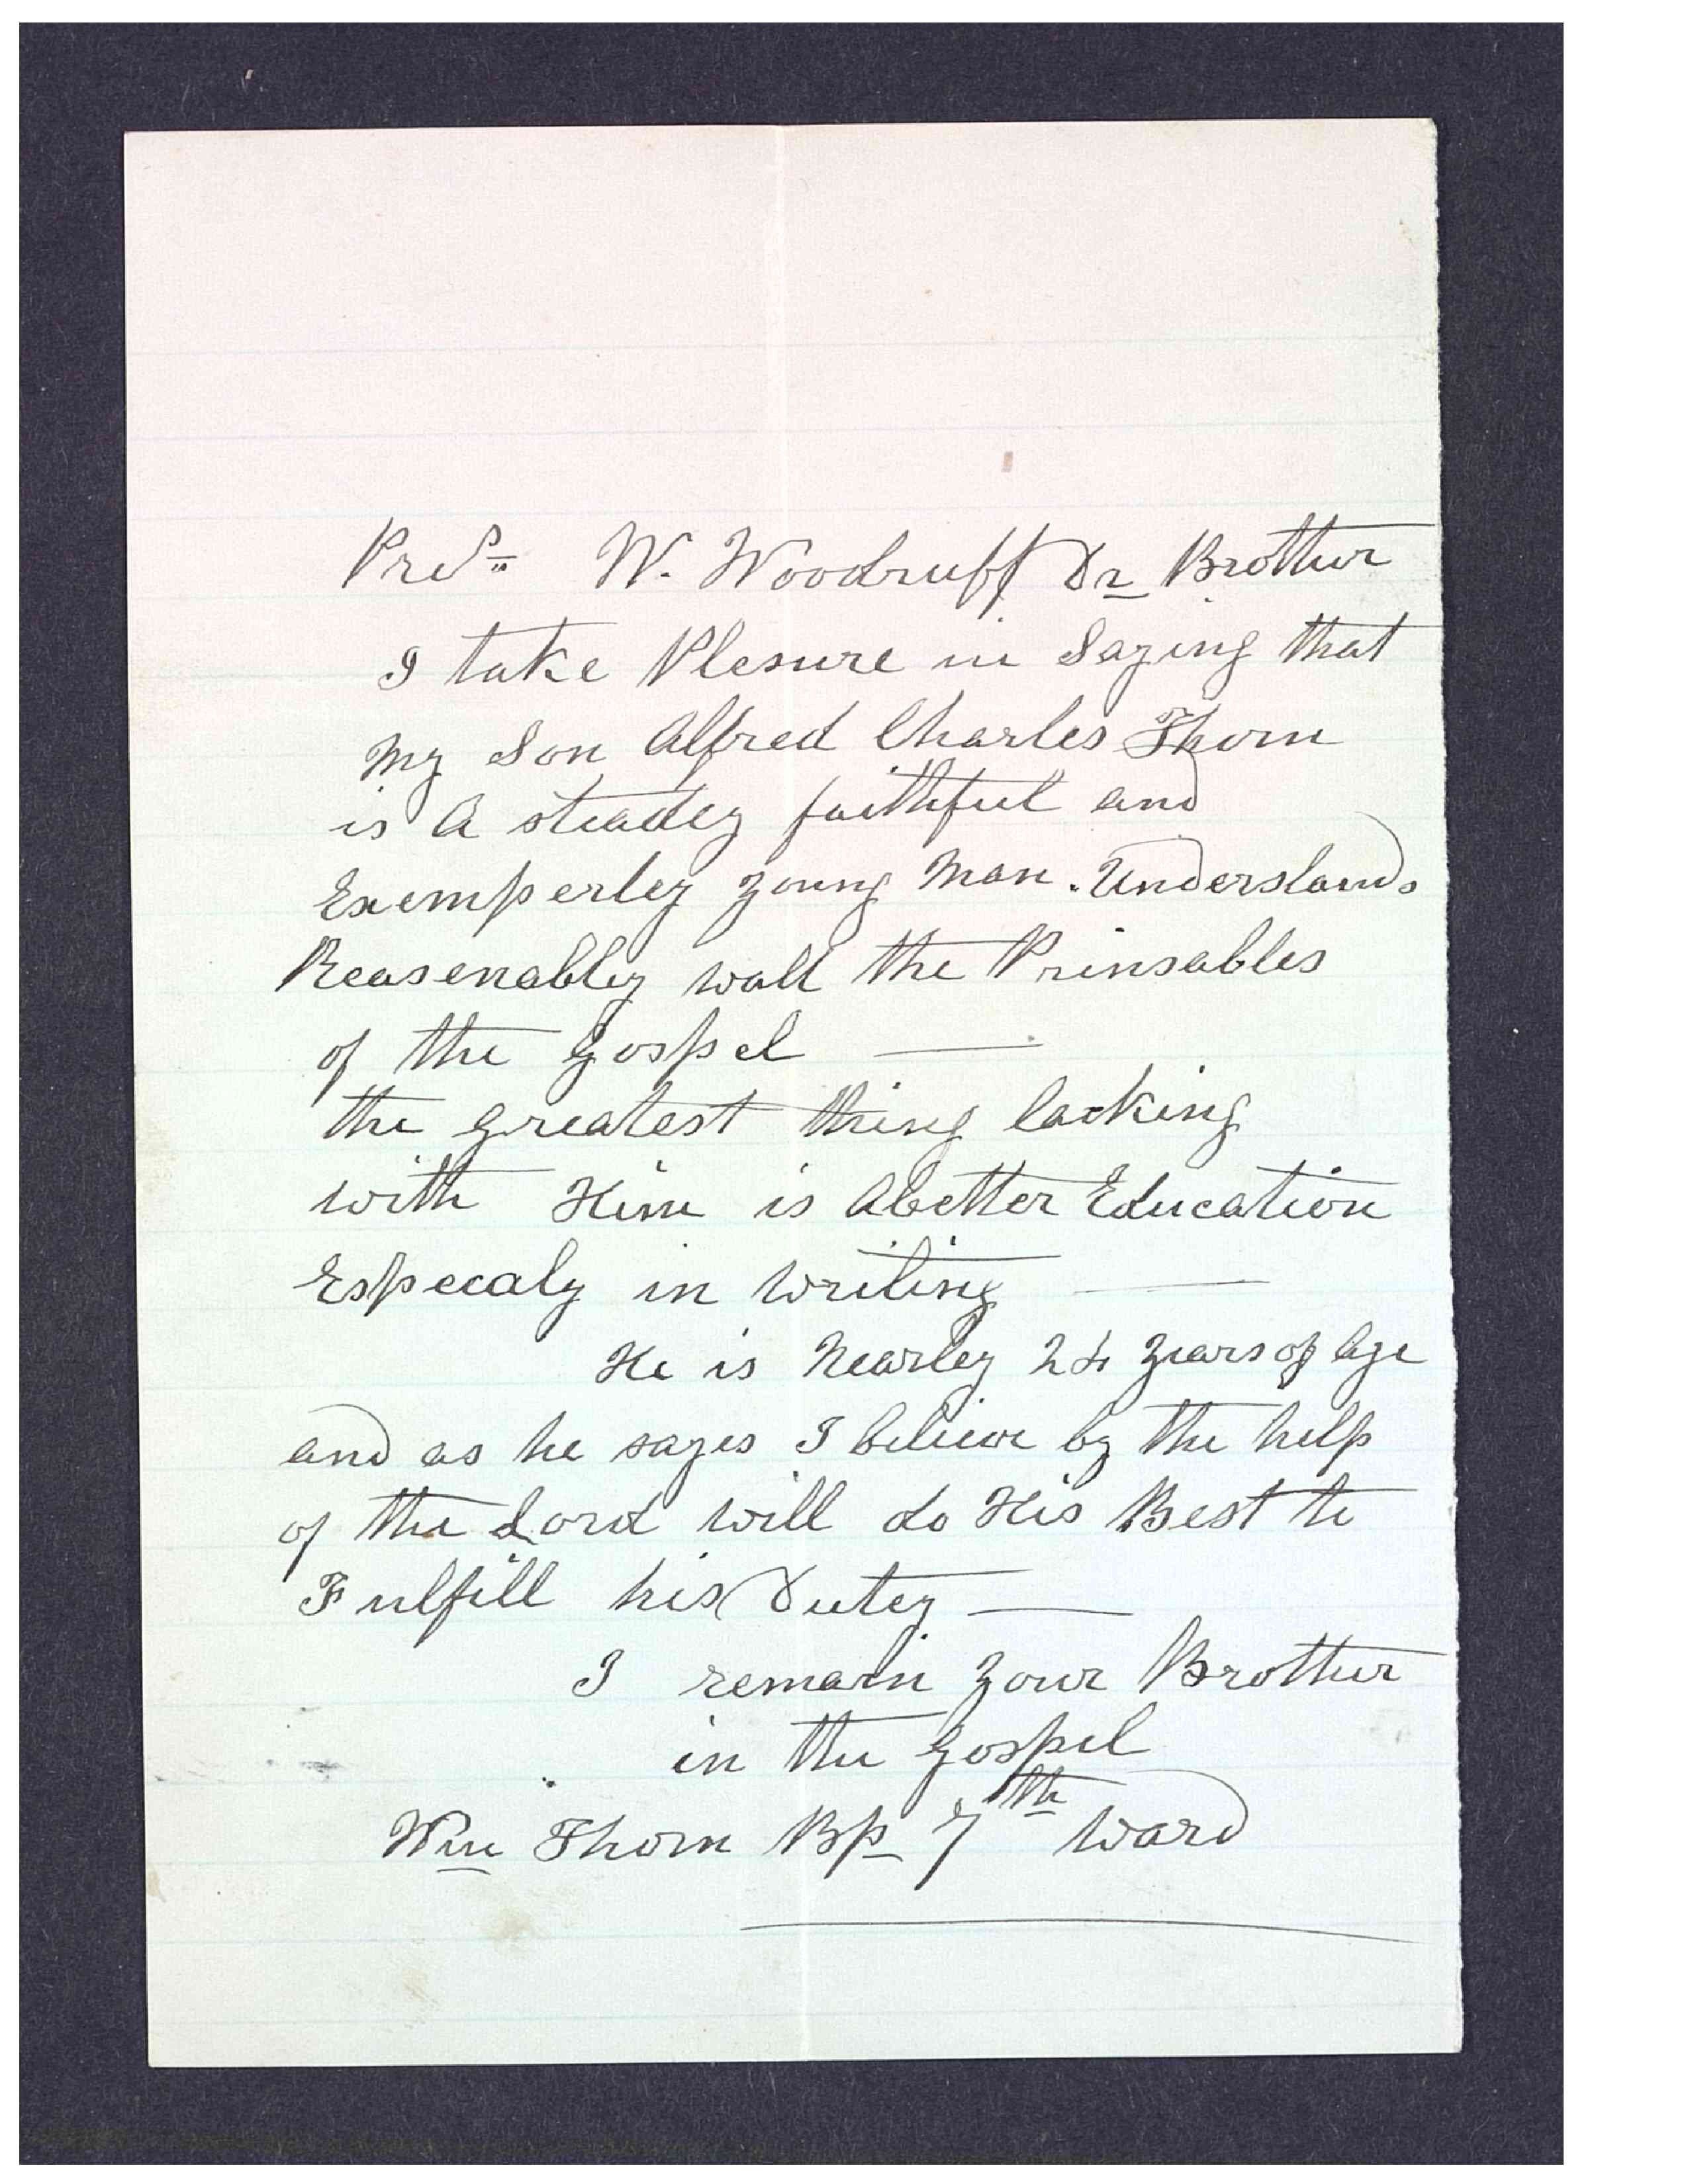 Pres. W. Woodruff Dr Brother
I take Plesure in Saying that
my Son Alfred Charles Thorn
is A steadey faithful and
Exemperley young Man. Understands
Reasenabley wall the Prinsables
of the Gospel —
the greatest thing lacking
with Him is Abetter Education
Especaly in writing —
He is Nearley 24 years of Age
and as he sayes I believe by the help
of the Lord will do His Best to
Fulfill his Dutey —
I remain your Brother
in the Gospel
Wm Thorn Bp 7th Ward